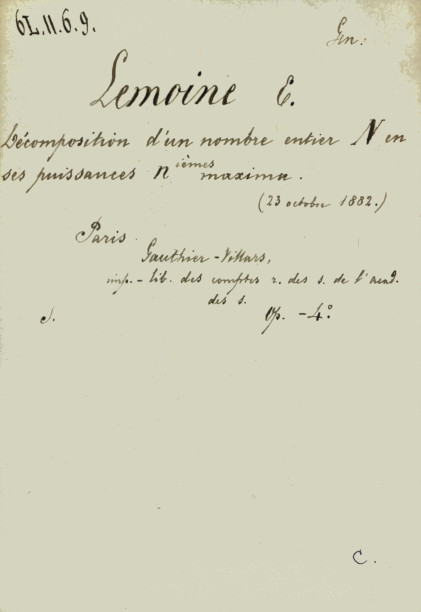 6L.11.6.9.
Gen:
Lemoine E.
Décomposition d'un nombre entier N en
ses puissances nièmes maxima.
(23 octobre 1882.)
Paris
Gauthier-Villars,
imp.-lib. des comptes r. des s. de l'acad.
des s.
s. Op. -4°.
C.